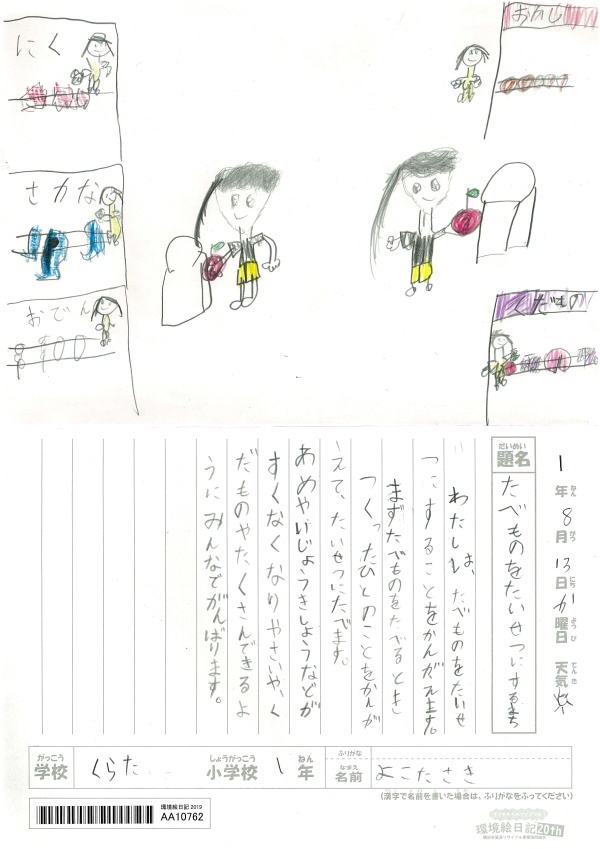 にく
おかし
さかな
おでん
くだもの
1年8月13日か曜日 天気
ねん がつ にち ようび てんき
だいめい
題名
たべものをたいせつにするまち
わたしは、たべものをたいせ
つにすることをかんがえます。
まずたべものをたべるとき
つくったひとのことをかんが
えて、たいせつにたべます。
あめやいじょうきしょうなどが
すくなくなりやさいや、く
だものやたくさんできるよ
うにみんなでがんばります。
がっこう しょうがっこう ねん ふりがな
学校 くらた 小学校 1年 なまえ 名前 よこたさき
(漢字で名前を書いた場合は、ふりがなをふってください)
環境絵日記 2019
AA10762
環境絵日記 20th